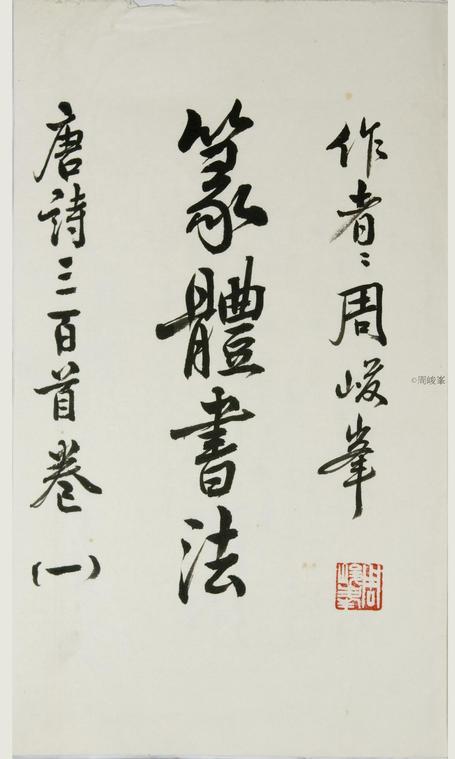 作者：周峻峯
篆體書法
唐詩三百首卷（一）
©周峻峯
周峻峯